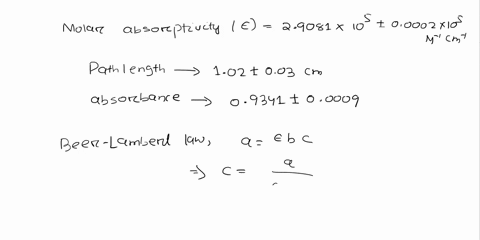 Molar absorptivity (ϵ) = 2.9081 × 10⁵ ± 0.0002 × 10⁵ M⁻¹ cm⁻¹
Path length → 1.02 ± 0.03 cm
absorbance → 0.9341 ± 0.0009
Beer-Lamberd law, a = ϵ b c
⇒ c = a /